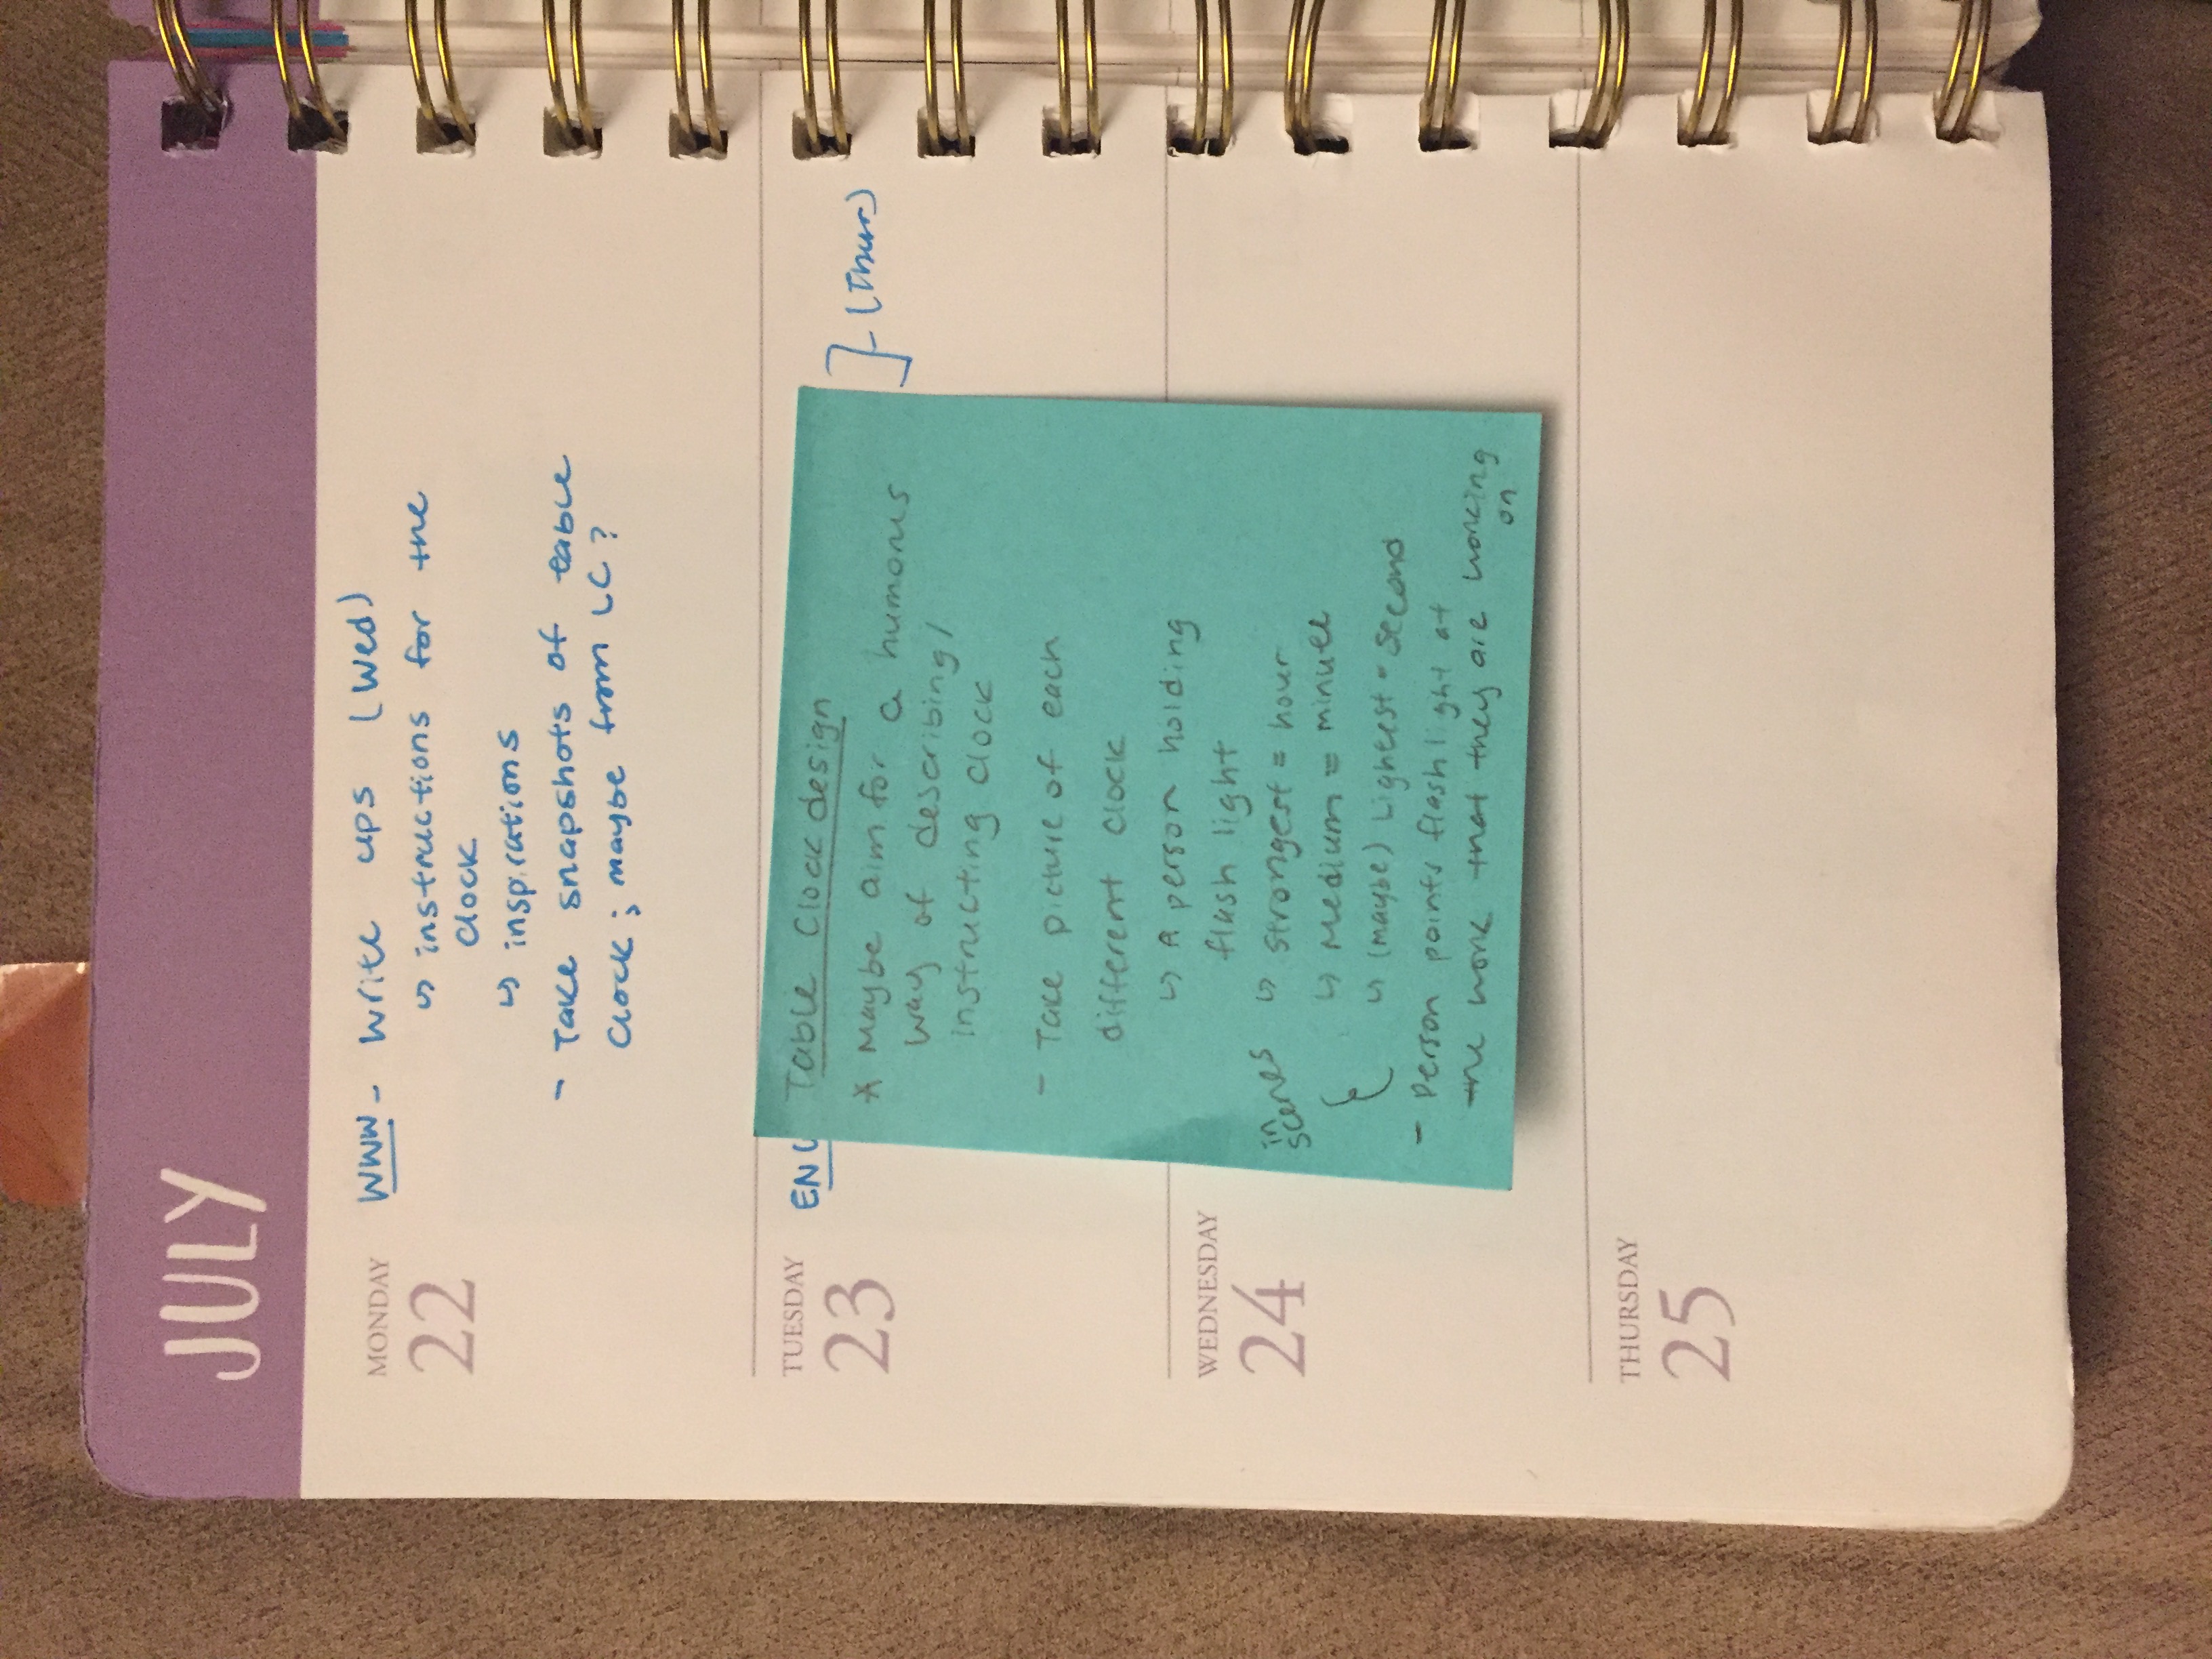 JULY
MONDAY
22
WWW - Write ups (Wed)
↳ instructions for the
clock
↳ inspirations
- Take snapshots of table
clock ; maybe from LC ?
TUESDAY
23
EN
] - (Thur)
Table Clock design
* Maybe aim for a humorus
way of describing /
instructing clock
- Take picture of each
different clock
↳ A person holding
flash light
in scenes
↳ strongest = hour
↳ Medium = minute
↳ (maybe) Lightest = second
- Person points flash light at
the work that they are working
on
WEDNESDAY
24
THURSDAY
25